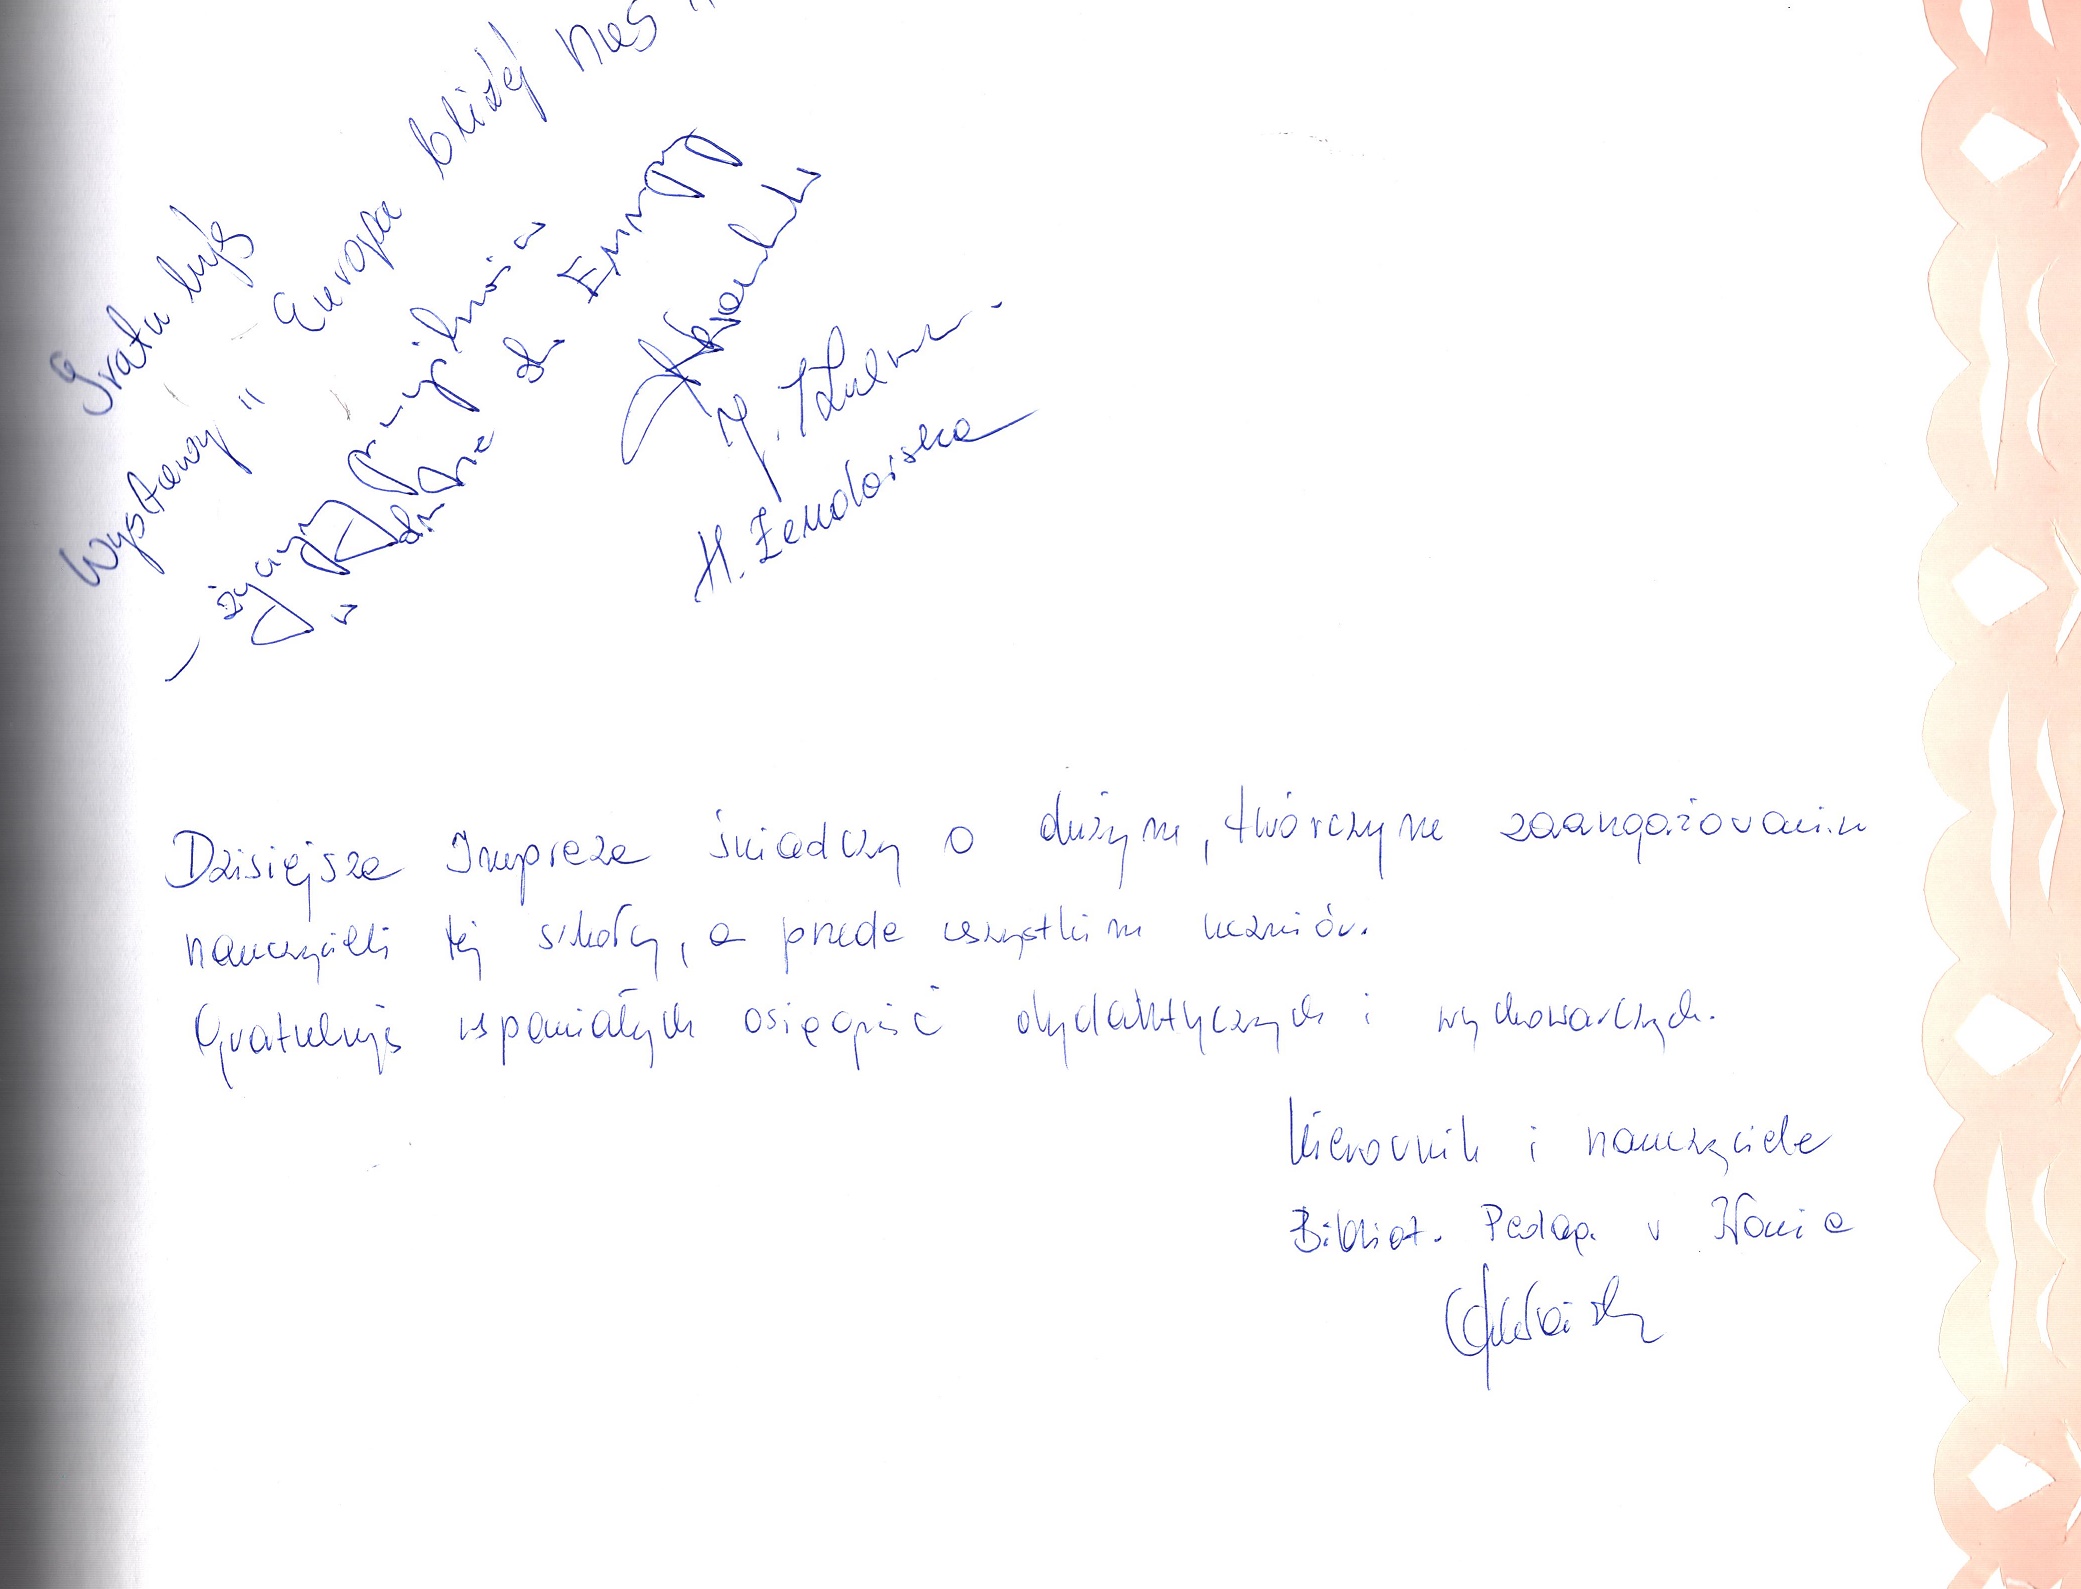 Gratuluję
Wystawy "Europa bliżej nas"
- życzymy pomyślności
w drodze do Europy
H. Żendarska
Dzisiejsza Impreza świadczy o dużym, twórczym zaangażowaniu
nauczycieli tej szkoły, a przede wszystkim uczniów.
Gratuluję wspaniałych osiągnięć dydaktycznych i wychowawczych.
Kierownik i nauczyciele
Bibliot. Pedag. w